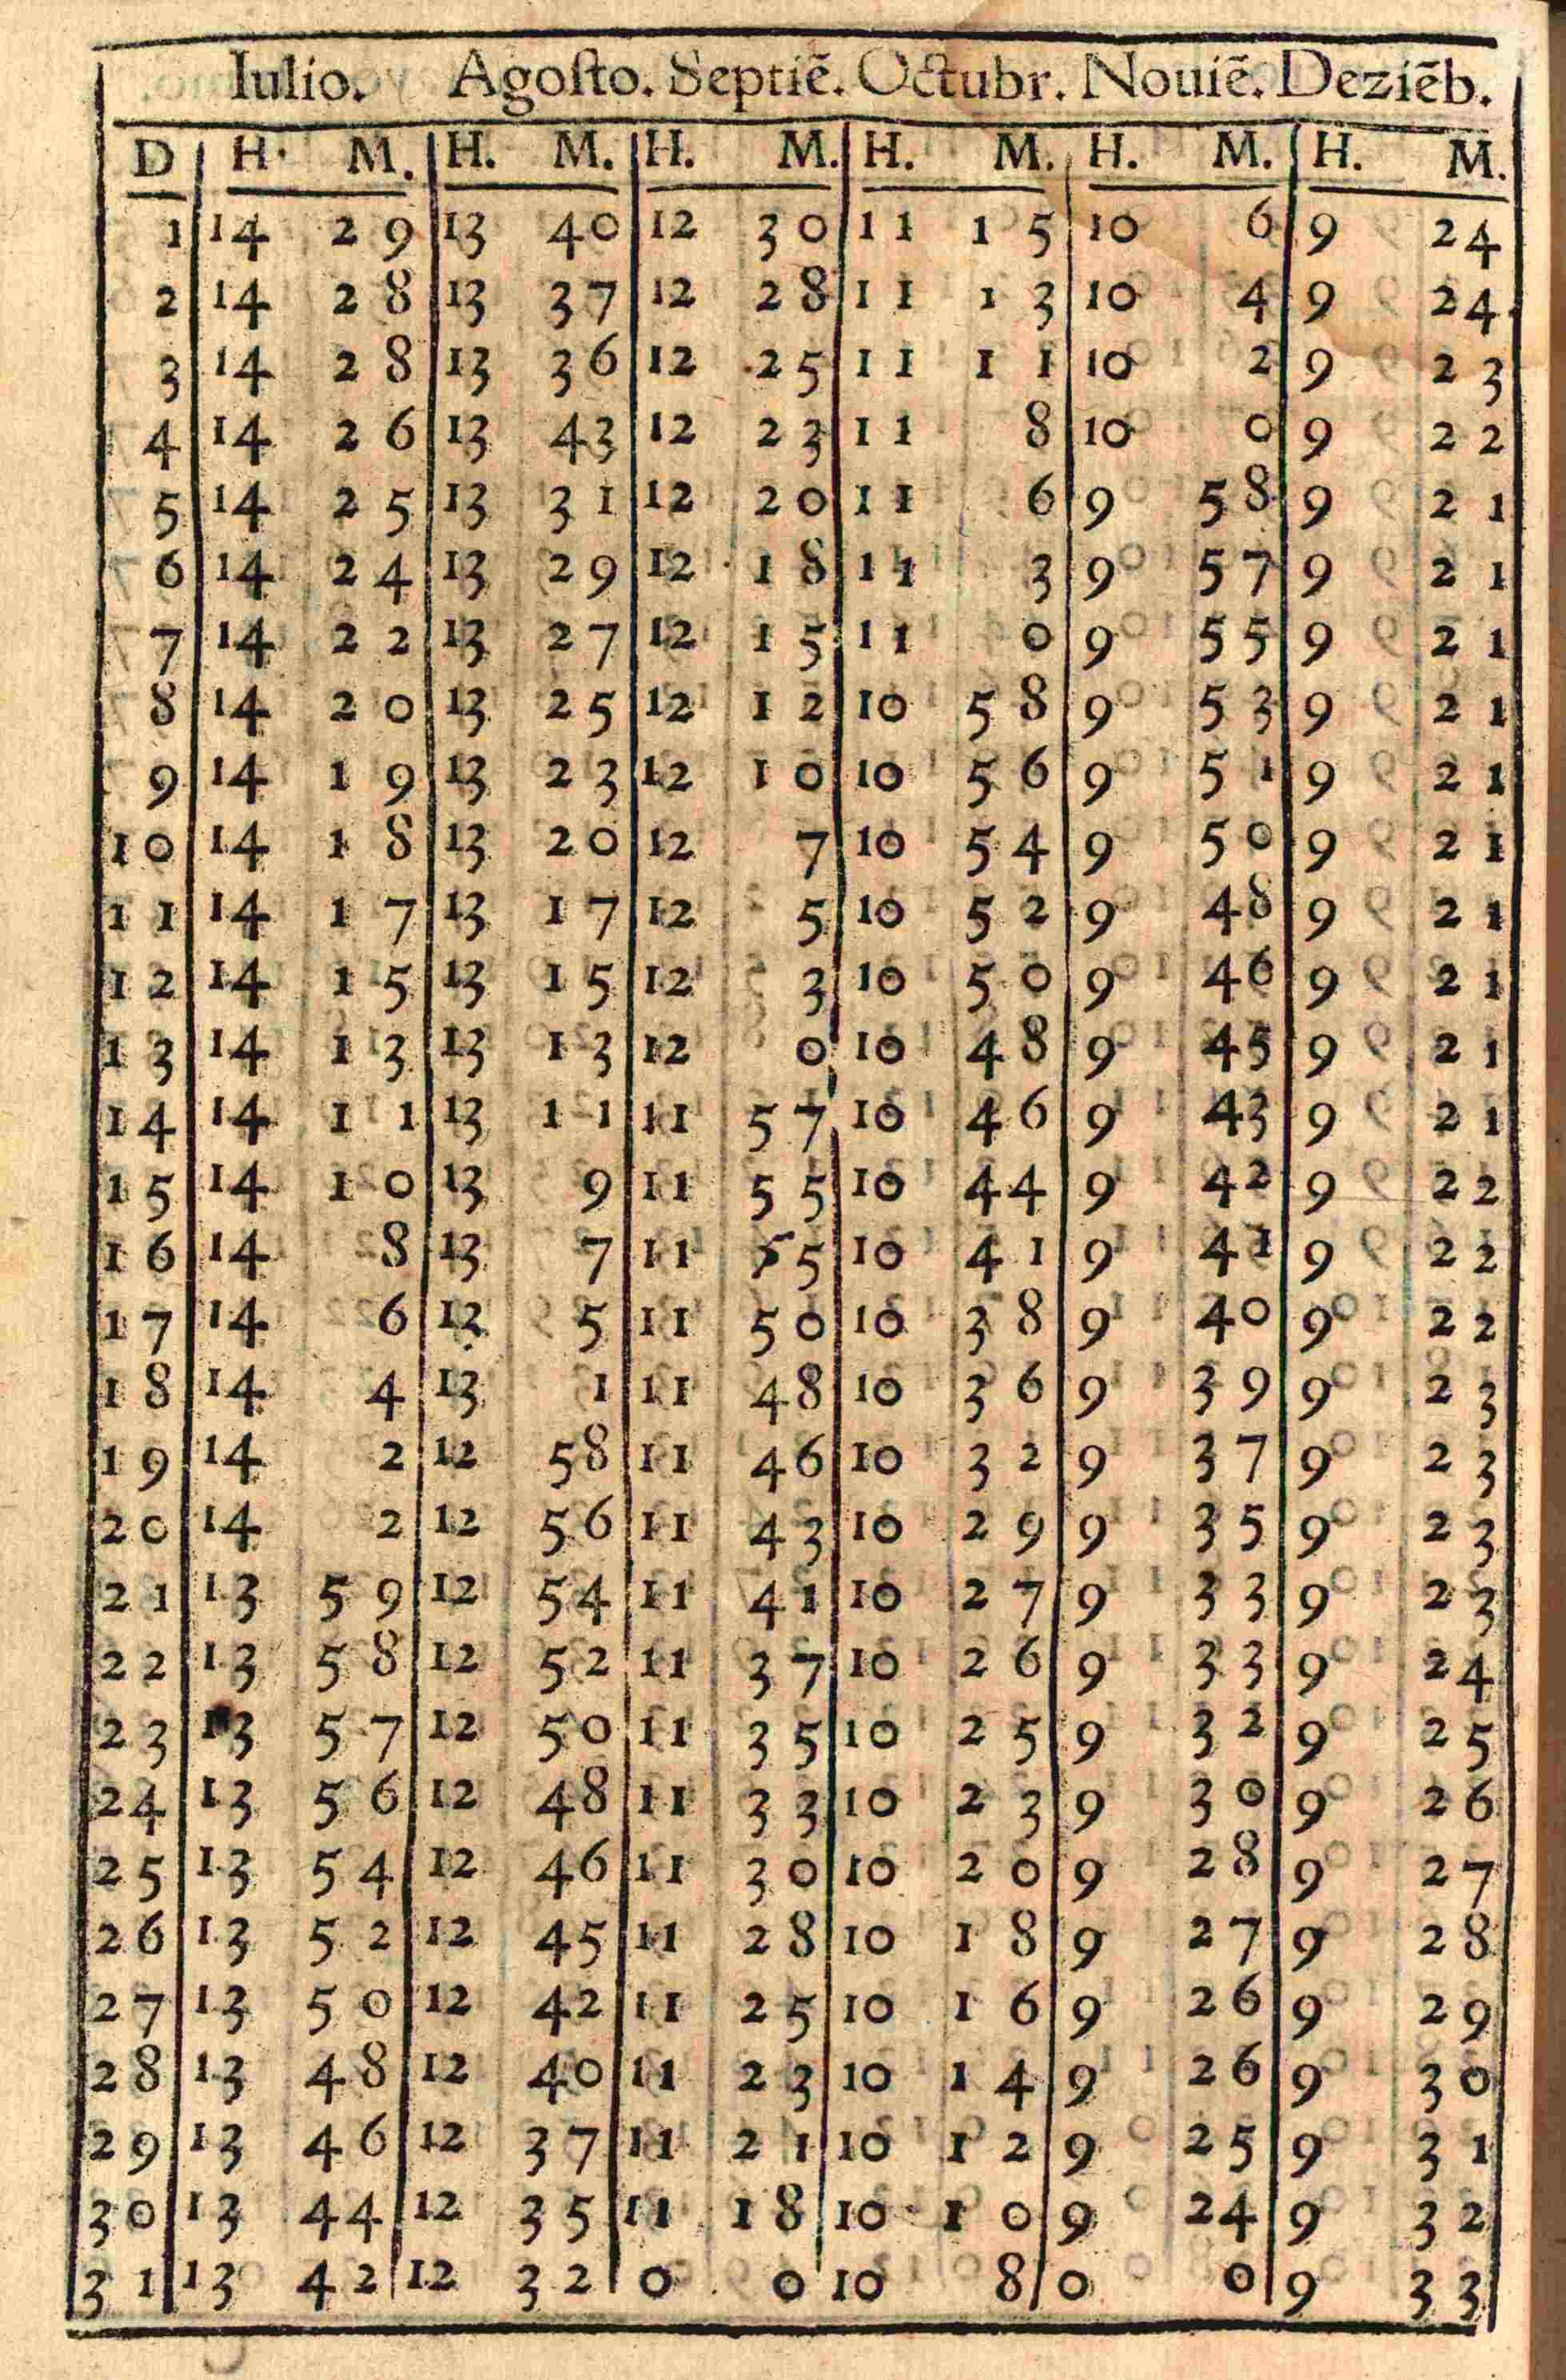 Iulio. Agoſto. Septiẽ. Octubr. Nouiẽ. Deziẽb.
D H. M. H. M. H. M. H. M. H. M. H. M.
1 14 29 13 40 12 30 11 15 10 6 9 24
2 14 28 13 37 12 28 11 13 10 4 9 24
3 14 28 13 36 12 25 11 11 10 2 9 23
4 14 26 13 43 12 23 11 8 10 0 9 22
5 14 25 13 31 12 20 11 6 9 58 9 21
6 14 24 13 29 12 18 11 3 9 57 9 21
7 14 22 13 27 12 15 11 0 9 55 9 21
8 14 20 13 25 12 12 10 58 9 53 9 21
9 14 19 13 23 12 10 10 56 9 51 9 21
10 14 18 13 20 12 7 10 54 9 50 9 21
11 14 17 13 17 12 5 10 52 9 48 9 21
12 14 15 13 15 12 3 10 50 9 46 9 21
13 14 13 13 13 12 0 10 48 9 45 9 21
14 14 11 13 11 11 57 10 46 9 43 9 21
15 14 10 13 9 11 55 10 44 9 42 9 22
16 14 8 13 7 11 55 10 41 9 41 9 22
17 14 6 13 5 11 50 10 38 9 40 9 22
18 14 4 13 1 11 48 10 36 9 39 9 23
19 14 2 12 58 11 46 10 32 9 37 9 23
20 14 2 12 56 11 43 10 29 9 35 9 23
21 13 59 12 54 11 41 10 27 9 33 9 23
22 13 58 12 52 11 37 10 26 9 33 9 24
23 13 57 12 50 11 35 10 25 9 32 9 25
24 13 56 12 48 11 33 10 23 9 30 9 26
25 13 54 12 46 11 30 10 20 9 28 9 27
26 13 52 12 45 11 28 10 18 9 27 9 28
27 13 50 12 42 11 25 10 16 9 26 9 29
28 13 48 12 40 11 23 10 14 9 26 9 30
29 13 46 12 37 11 21 10 12 9 25 9 31
30 13 44 12 35 11 18 10 10 9 24 9 32
31 13 42 12 32 0 0 10 8 0 0 9 33